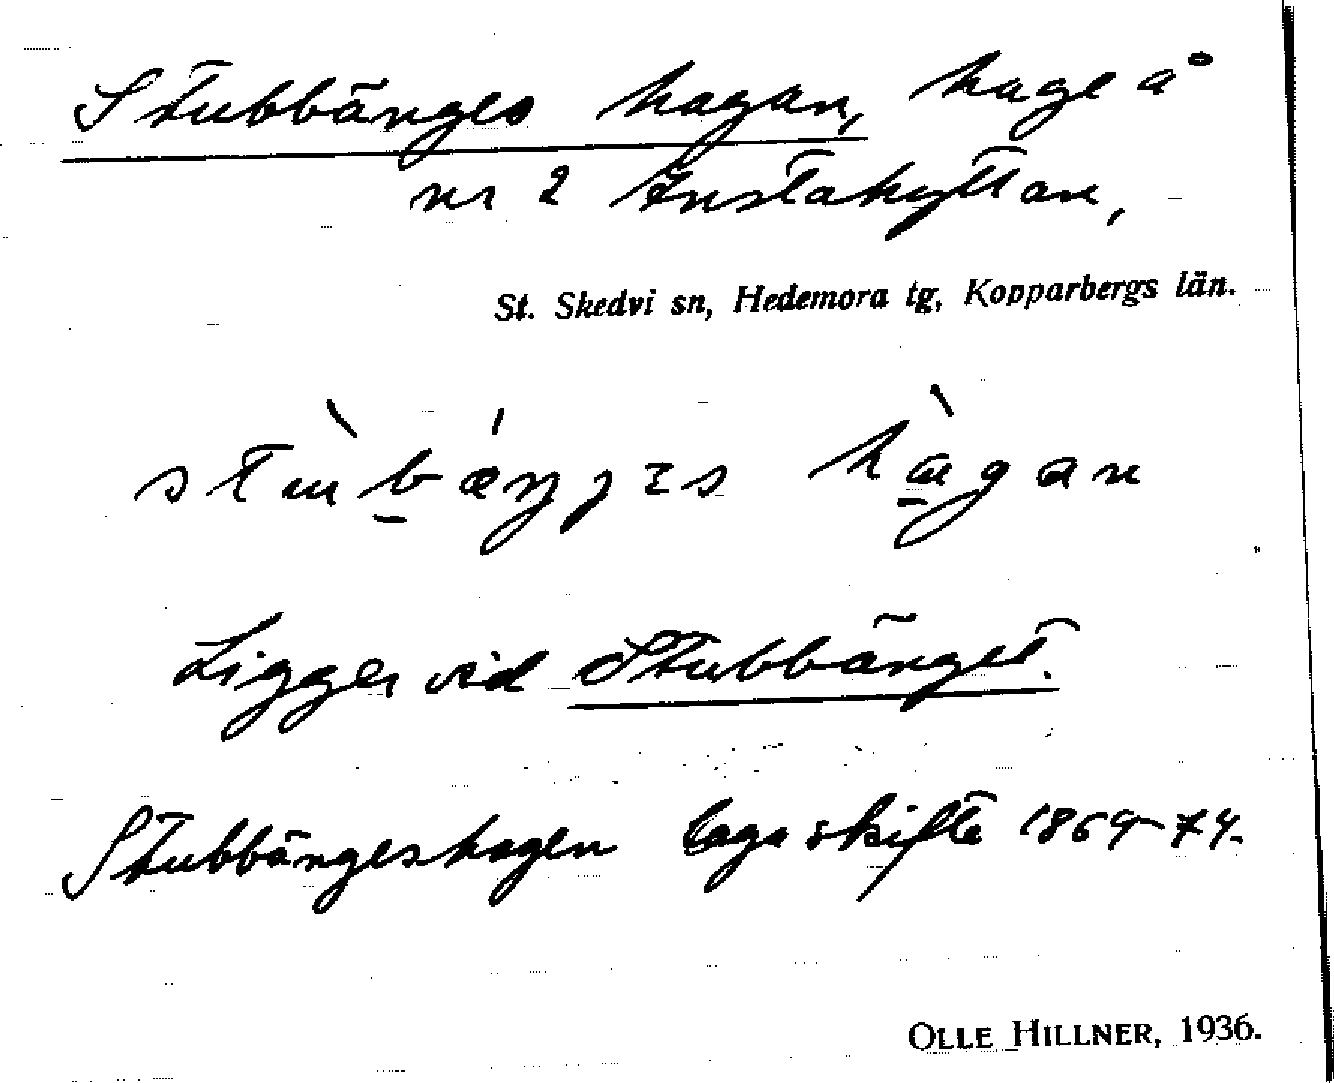 Stubbänges hagan, hage å
nr 2 Enstahyttan,
St. Skedvi sn, Hedemora tg, Kopparbergs län.
Ligger vid Stubbänget.
Stubbängeshagen laga skifte 1869-74.
OLLE HILLNER, 1936.